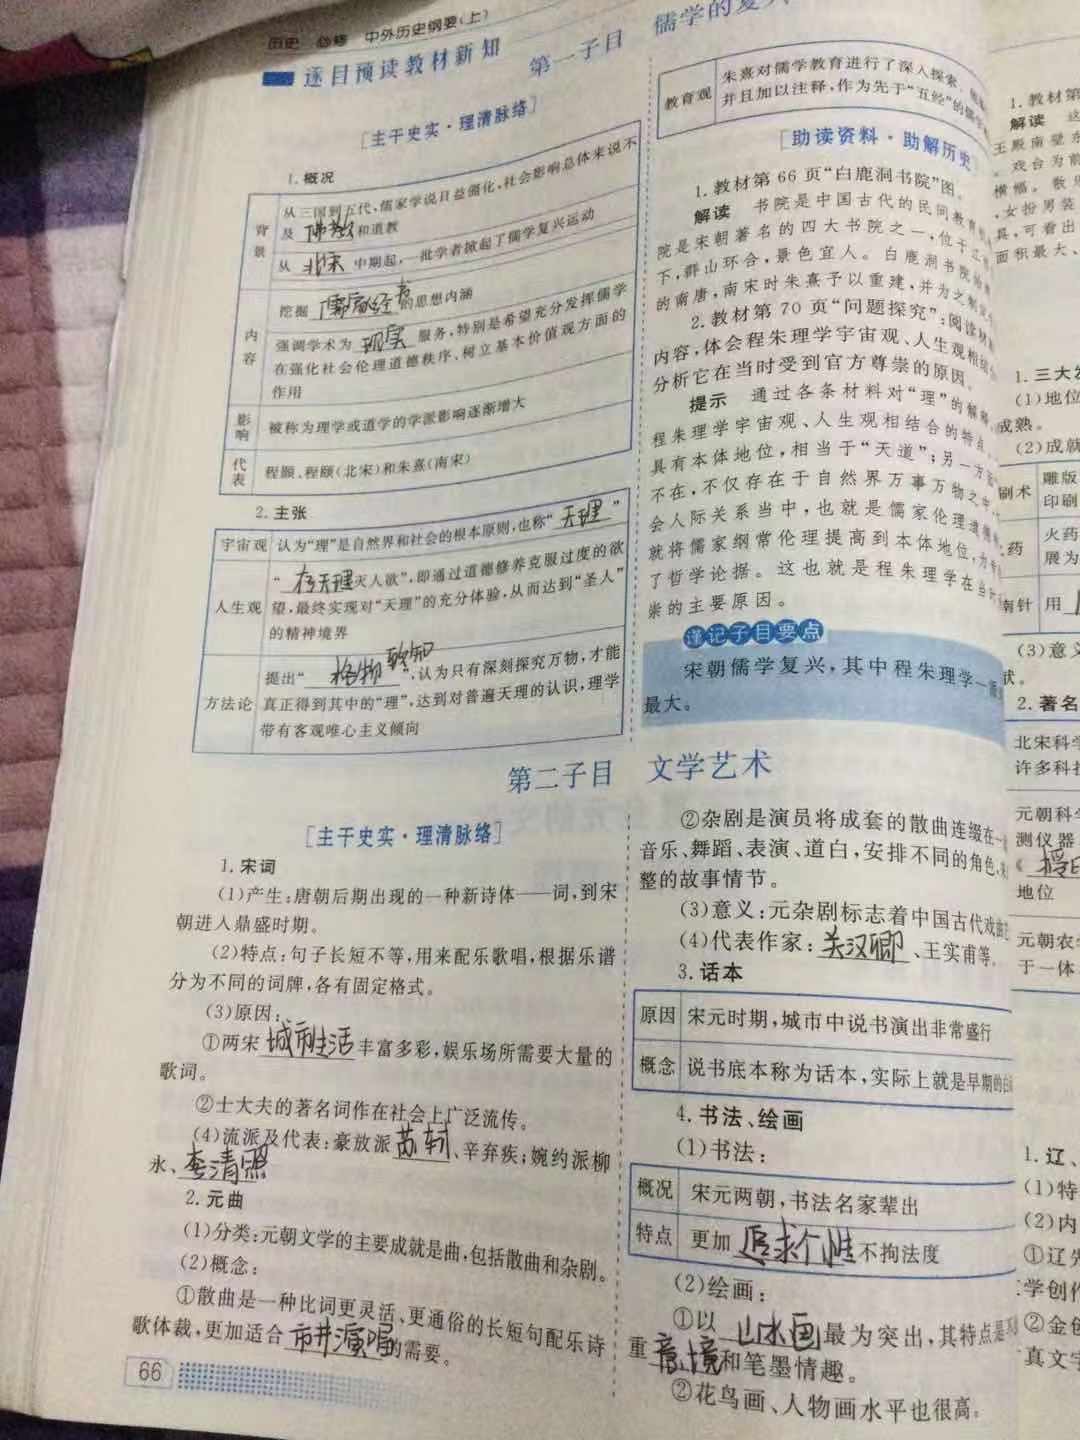 历史 必修 中外历史纲要(上)
逐目预读教材新知
第一子目 儒学的复兴
[主干史实·理清脉络]
1. 概况
背景
从三国到五代,儒家学说日益僵化,社会影响总体来说不
及 佛教 和道教
从 北宋 中期起,一批学者掀起了儒学复兴运动
内容
挖掘 儒家经典 的思想内涵
强调学术为 现实 服务,特别是希望充分发挥儒学
在强化社会伦理道德秩序、树立基本价值观方面的
作用
影响
被称为理学或道学的学派影响逐渐增大
代表
程颢、程颐(北宋)和朱熹(南宋)
2. 主张
宇宙观 认为“理”是自然界和社会的根本原则,也称“ 天理 ”
人生观
“ 存天理 灭人欲”,即通过道德修养克服过度的欲
望,最终实现对“天理”的充分体验,从而达到“圣人”
的精神境界
方法论
提出“ 格物致知 ,认为只有深刻探究万物,才能
真正得到其中的“理”,达到对普遍天理的认识,理学
带有客观唯心主义倾向
教育观
朱熹对儒学教育进行了深入探索,
并且加以注释,作为先于“五经”的儒学
[助读资料·助解历史
1. 教材第 66 页“白鹿洞书院”图。
解读 书院是中国古代的民间教育机
院是宋朝著名的四大书院之一,位于江
下,群山环合,景色宜人。白鹿洞书院
的南唐,南宋时朱熹予以重建,并为之制
2. 教材第 70 页“问题探究”:阅读材
内容,体会程朱理学宇宙观、人生观相结
分析它在当时受到官方尊崇的原因。
提示 通过各条材料对“理”的解释
程朱理学宇宙观、人生观相结合的特点
具有本体地位,相当于“天道”;另一方
不在,不仅存在于自然界万事万物之中
会人际关系当中,也就是儒家伦理道德
就将儒家纲常伦理提高到本体地位,为
了哲学论据。这也就是程朱理学在当时
崇的主要原因。
谨记子目要点
宋朝儒学复兴,其中程朱理学一
最大。
第二子目 文学艺术
[主干史实·理清脉络]
1. 宋词
(1)产生:唐朝后期出现的一种新诗体——词,到宋
朝进入鼎盛时期。
(2)特点:句子长短不等,用来配乐歌唱,根据乐谱
分为不同的词牌,各有固定格式。
(3)原因:
①两宋 城市生活 丰富多彩,娱乐场所需要大量的
歌词。
②士大夫的著名词作在社会上广泛流传。
(4)流派及代表:豪放派 苏轼 、辛弃疾;婉约派柳
永、 李清照
2. 元曲
(1)分类:元朝文学的主要成就是曲,包括散曲和杂剧。
(2)概念:
①散曲是一种比词更灵活、更通俗的长短句配乐诗
歌体裁,更加适合 市井演唱 的需要。
66
②杂剧是演员将成套的散曲连缀在一
音乐、舞蹈、表演、道白,安排不同的角色,
整的故事情节。
(3)意义:元杂剧标志着中国古代戏曲
(4)代表作家: 关汉卿 、王实甫等。
3. 话本
原因 宋元时期,城市中说书演出非常盛行
概念 说书底本称为话本,实际上就是早期的白
4. 书法、绘画
(1)书法:
概况 宋元两朝,书法名家辈出
特点 更加 追求个性 不拘法度
(2)绘画:
①以 山水画 最为突出,其特点是
重 意境 和笔墨情趣。
②花鸟画、人物画水平也很高。
1. 教材第
解读 这
王殿南壁东
戏台为前
横幅。
,女扮男装
具,可看出
面积最大、
1. 三大发
(1)地位
成熟。
(2)成就
刷术 雕版
印刷
火药
药
展为
南针 用
(3)意义
试。
2. 著名
北宋科学
许多科技
元朝科学
测仪器
《 授时
地位
元朝农学
于一体
1. 辽、
(1)特
(2)内
①辽
学创作
②金
真文字